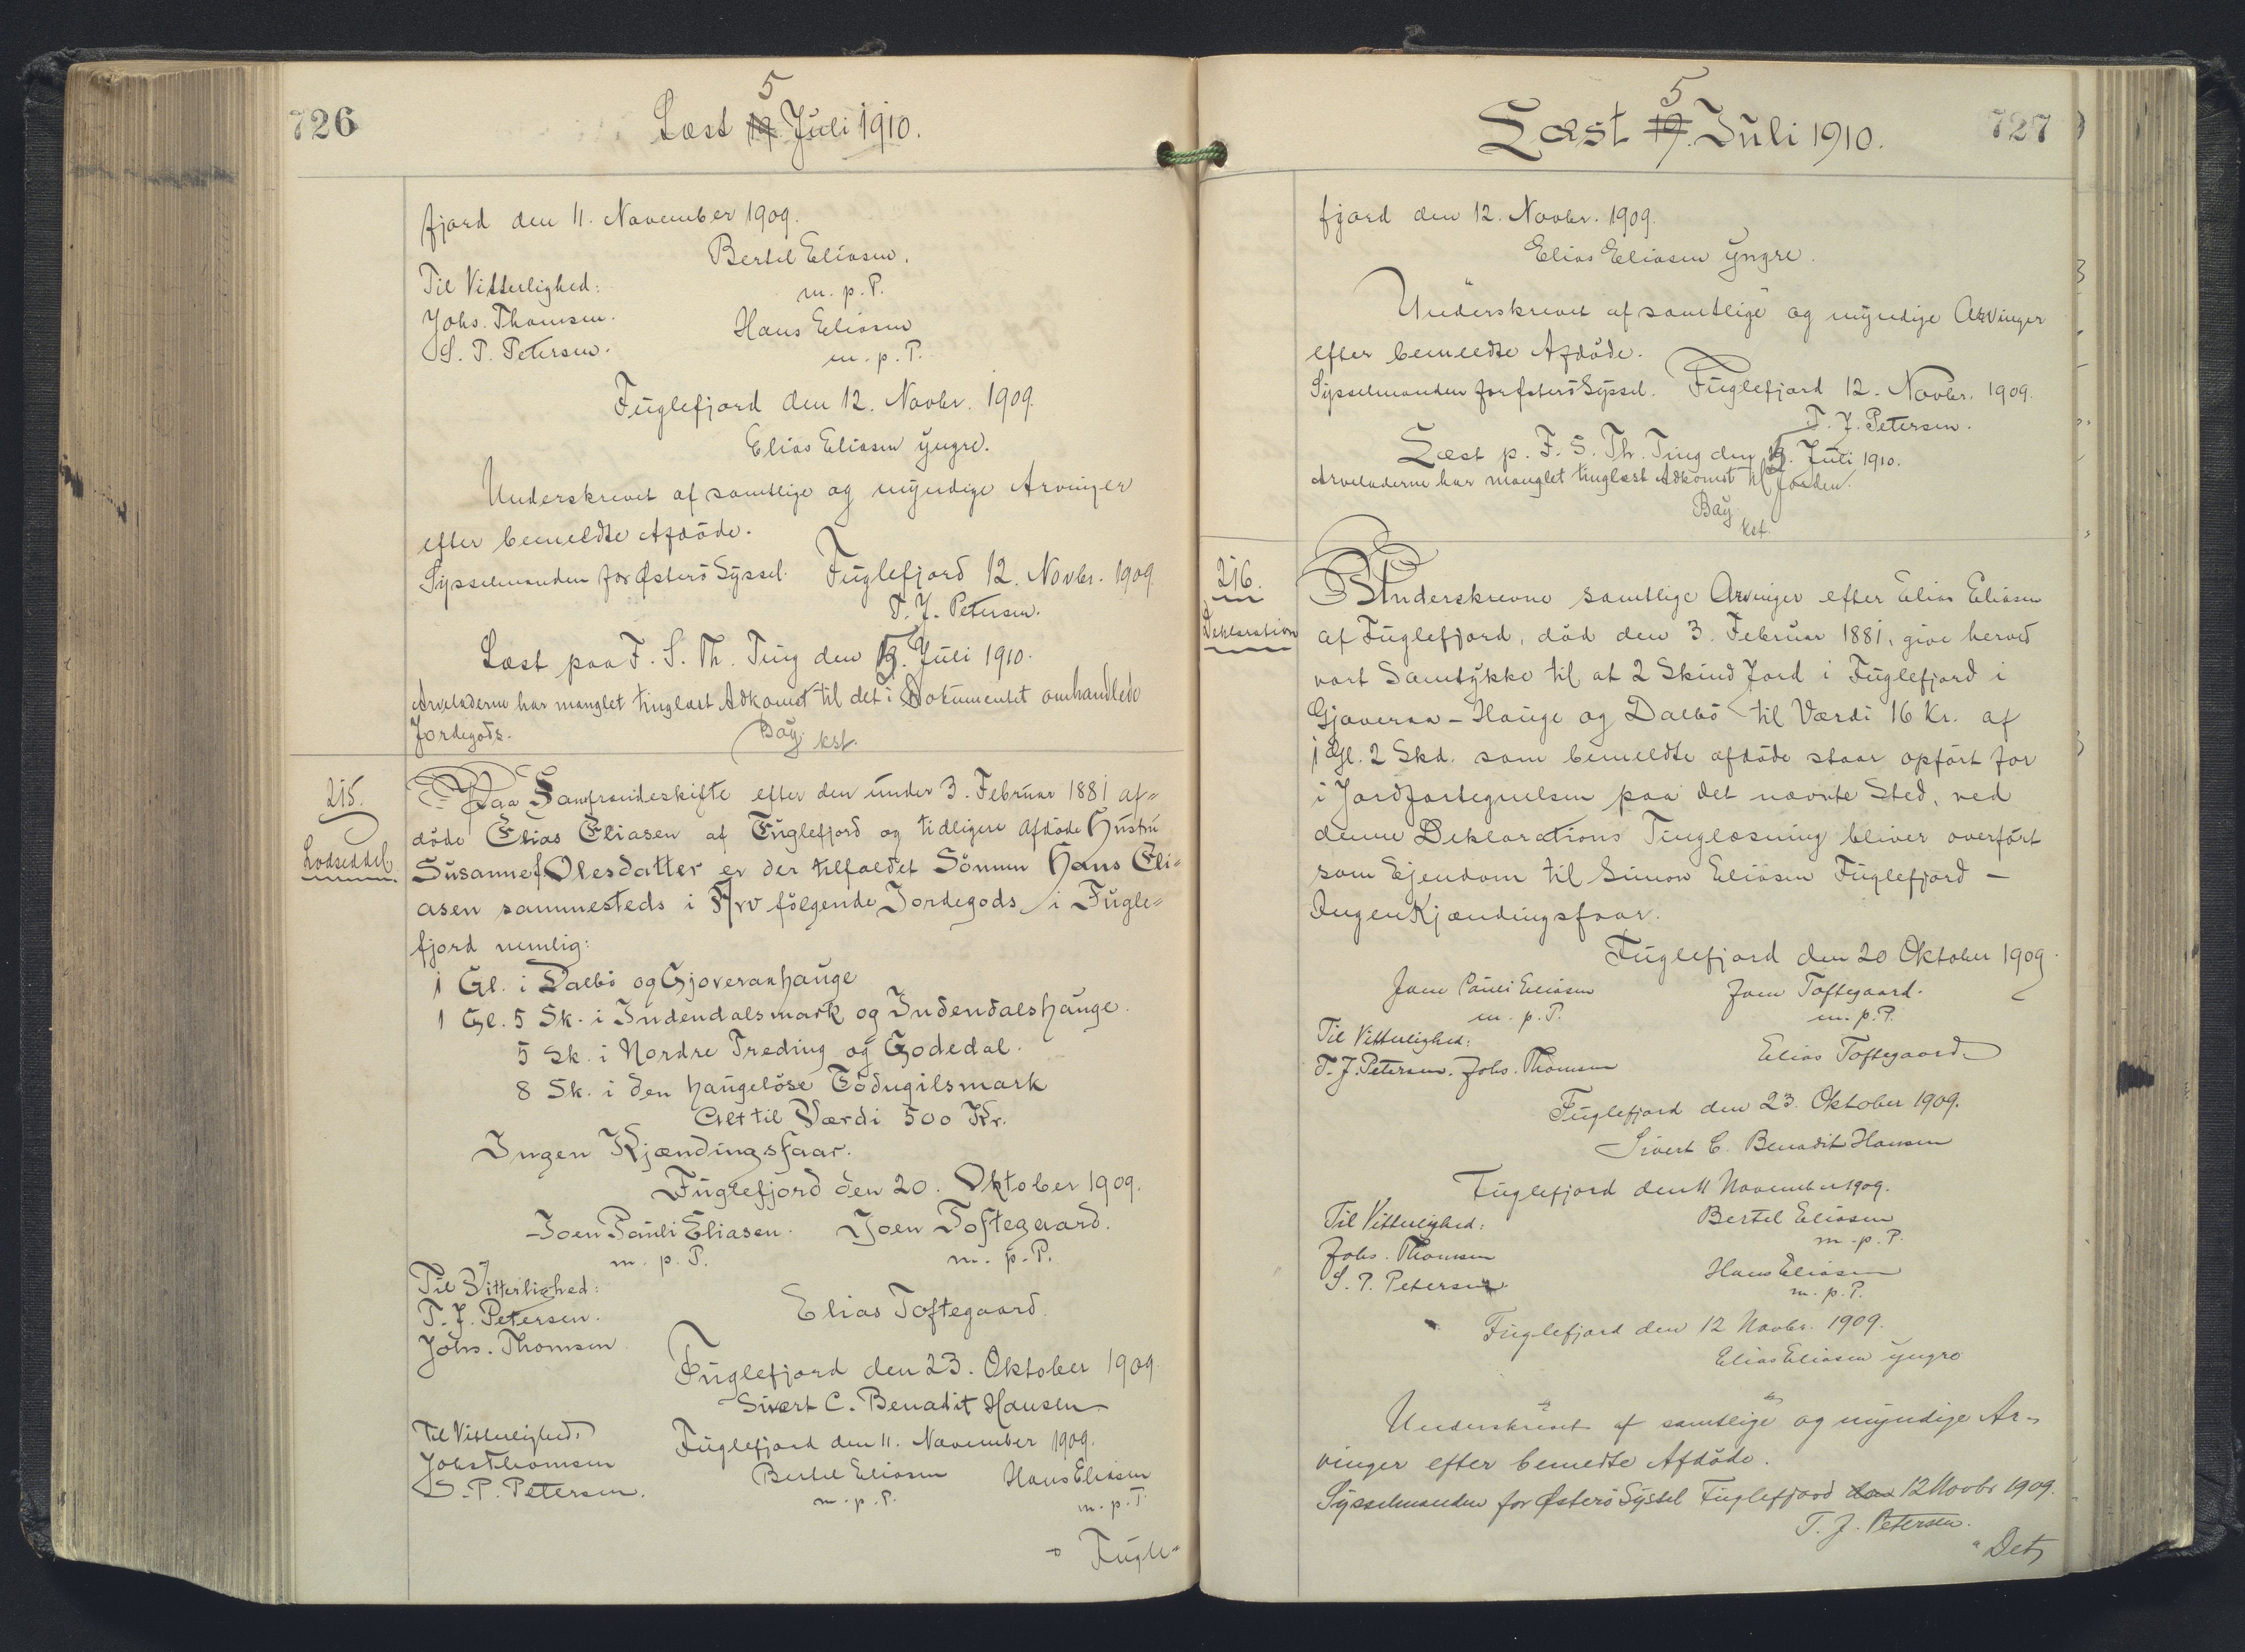 726
Læst 5 Juli 1910.
fjord den 11. November 1909.
Bertel Eliasen.
Til Vitterlighed:
m. p. P.
Johs. Thomsen.
Hans Eliasen
S. P. Petersen.
m. p. P.
Fuglefjord den 12. Novbr. 1909.
Elias Eliasen yngre.
Underskrevet af samtlige og myndige Arvinger
efter bemeldte Afdøde.
Sysselmanden for Østerø Syssel. Fuglefjord 12. Novbr. 1909
T. J. Petersen.
Læst paa F. S. Th. Ting den 5. Juli 1910.
Arveladerne har manglet tinglæst Adkomst til det i Dokumentet omhandlede
Jordegods.
Bay kst.
215.
Lodseddel
Paa Samfrændeskifte efter den under 3. Februar 1881 af-
døde Elias Eliasen af Fuglefjord og tidligere afdøde Hustru
Susanne Olesdatter er der tilfaldet Sønnen Hans Eli-
asen sammesteds i Arv følgende Jordegods i Fugle-
fjord nemlig:
1 Gl. i Dalbø og Gjoveranhauge
1 Gl. 5 Sk. i Indendalsmark og Indendalshauge.
5 Sk. i Nordre Treding og Godedal.
8 Sk. i den haugeløse Tødugilsmark
Alt til Værdi 500 Kr.
Ingen Kjændingsfaar.
Fuglefjord den 20. Oktober 1909.
Joen Pauli Eliasen. Joen Toftegaard.
m. p. P. m. p. P.
Til Vitterlighed:
T. J. Petersen.
Elias Toftegaard.
Johs. Thomsen
Fuglefjord den 23. Oktober 1909.
Sivert C. Benadit Hansen
Til Vitterlighed.
Fuglefjord den 11. November 1909.
Johs Thomsen
Bertel Eliasen Hans Eliasen
S. P. Petersen.
m. p. P. m. p. P.
Fugle-
727
Læst 5 Juli 1910.
fjord den 12. Novbr. 1909.
Elias Eliasen yngre.
Underskrevet af samtlige og myndige Arvinger
efter bemeldte Afdøde.
Sysselmanden for Østerø Syssel. Fuglefjord 12. Novbr. 1909.
T. J. Petersen.
Læst p. F. S. Th. Ting den 5. Juli 1910.
Arveladerne har manglet tinglæst Adkomst til Jorden.
Bay
kst.
216.
Deklaration
Underskrevne samtlige Arvinger efter Elias Eliasen
af Fuglefjord, død den 3. Februar 1881, give herved
vort Samtykke til at 2 Skind Jord i Fuglefjord i
Gjoveran-Hauge og Dalbø til Værdi 16 Kr. af
1 Gl. 2 Skd. som bemeldte afdøde staar opført for
i Jordfortegnelsen paa det nævnte Sted, ved
denne Deklarations Tinglæsning bliver overført
som Ejendom til Simon Eliasen Fuglefjord —
Ingen Kjændingsfaar.
Fuglefjord den 20 Oktober 1909.
Joen Pauli Eliasen Joen Toftegaard.
m. p. P. m. p. P.
Til Vitterlighed:
Elias Toftegaard
T. J. Petersen. Johs. Thomsen
Fuglefjord den 23. Oktober 1909.
Sivert C. Benadit Hansen
Fuglefjord den 11 November 1909.
Til Vitterlighed:
Bertel Eliasen
m. p. P.
Johs. Thomsen
Hans Eliasen
S. P. Petersen
m. p. P.
Fuglefjord den 12 Novbr. 1909.
Elias Eliasen yngre
Underskrevet af samtlige og myndige Ar-
vinger efter bemeldte Afdøde.
Sysselmanden for Østerø Syssel Fuglefjord den 12 Novbr 1909.
T. J. Petersen.
Det